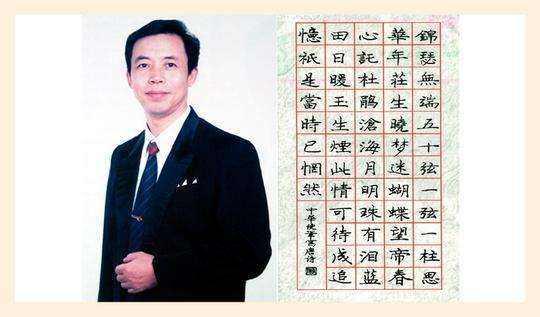 錦瑟無端五十弦一弦一柱思
華年莊生曉梦迷蝴蝶望帝春
心託杜鵑滄海月明珠有泪藍
田日暖玉生煙此情可待成追
憶祇是當時已惘然